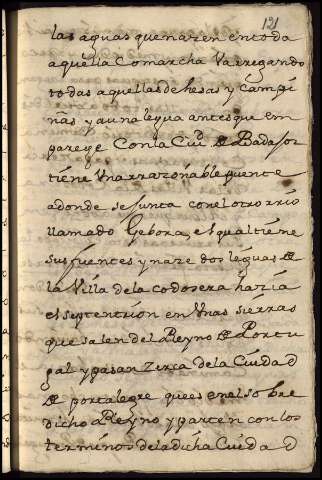 121
las aguas que nazen en toda
aquella Comarcha Va rregando
todas aquellas dehesas y campi
nas y a una legua antes que em
pareje Con la Ciud de Badajoz
tiene Una rrazonable puente
a donde se junta con el otro rrio
llamado Gebora, el qual tiene
sus fuentes y naze dos leguas de
la Villa de la codosera hazia
el septentrion en Unas sierras
que salen del Reyno de Portu
gal y pasan zerca de la Ciudad
de portalegre que es en el sobre
dicho Reyno y parten con los
terminos de la dicha Ciudad